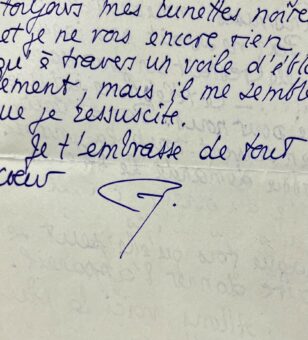 toujours mes lunettes noires
et je ne vois encore rien
qu'à travers un voile d'éblo
lement, mais il me semble
que je ressuscite.
Je t'embrasse de tout
coeur